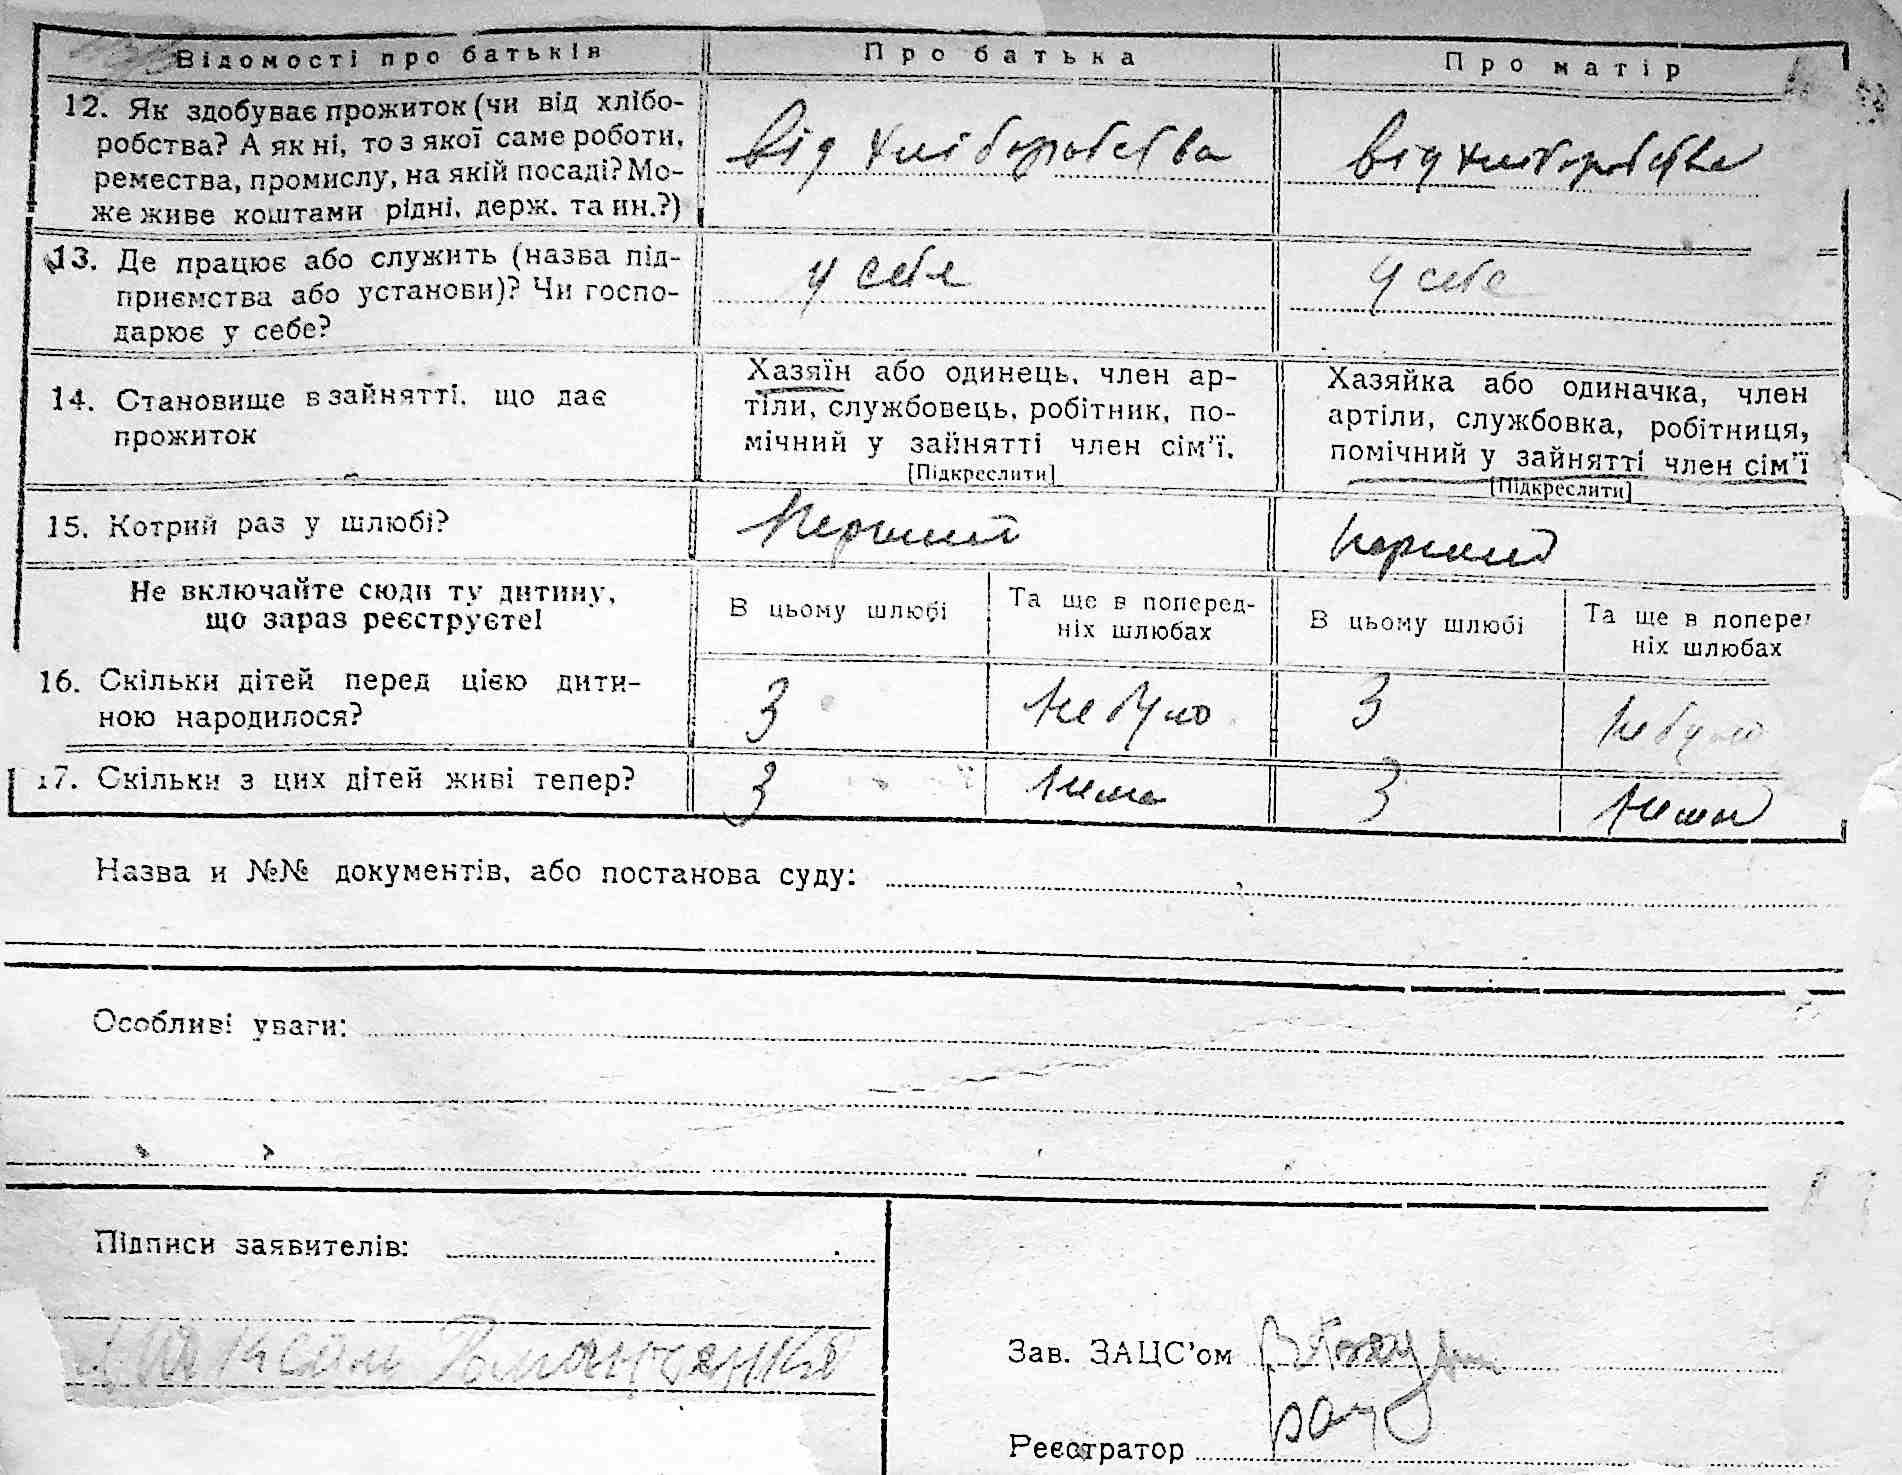 Відомості про батьків Про батька Про матір
12. Як здобуває прожиток (чи від хлібо-
робства? А як ні, то з якої саме роботи,
ремества, промислу, на якій посаді? Мо-
же живе коштами рідні, держ. та ин.?)
від хліборобства від хліборобства
13. Де працює або служить (назва під-
приємства або установи)? Чи госпо-
дарює у себе?
у себе у себе
14. Становище в зайнятті, що дає
прожиток
Хазяїн або одинець, член ар-
тіли, службовець, робітник, по-
мічний у зайнятті член сім'ї.
[Підкреслити]
Хазяйка або одиначка, член
артіли, службовка, робітниця,
помічний у зайнятті член сім'ї
[Підкреслити]
15. Котрий раз у шлюбі? Перший Перший
Не включайте сюди ту дитину,
що зараз реєструєте!
В цьому шлюбі
Та ще в поперед-
ніх шлюбах
В цьому шлюбі
Та ще в попере
ніх шлюбах
16. Скільки дітей перед цією дити-
ною народилося?
3 не було 3 не було
17. Скільки з цих дітей живі тепер? 3 нема 3 нема
Назва и №№ документів, або постанова суду:
Особливі уваги:
Підписи заявителів:
Зав. ЗАЦС'ом
Реєстратор